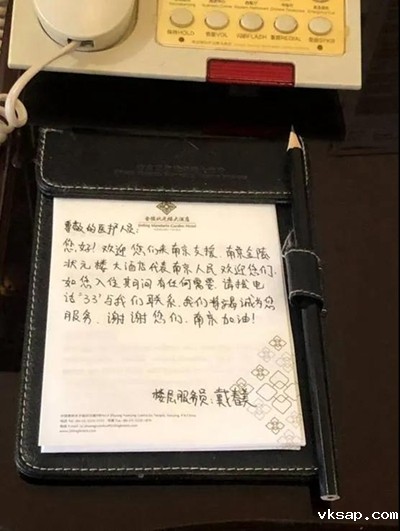 保持HOLD
音量VOL
闪断FLASH
重拨REDIAL
金陵状元楼大酒店
Jinling Mandarin Garden Hotel
尊敬的医护人员:
您好!欢迎您们来南京支援,南京金陵
状元楼大酒店代表南京人民欢迎您们,
如您入住期间有任何需要,请拨电
话"33"与我们联系,我们将竭诚为您
服务。谢谢您们,南京加油!
楼层服务员:戴
vksap.com